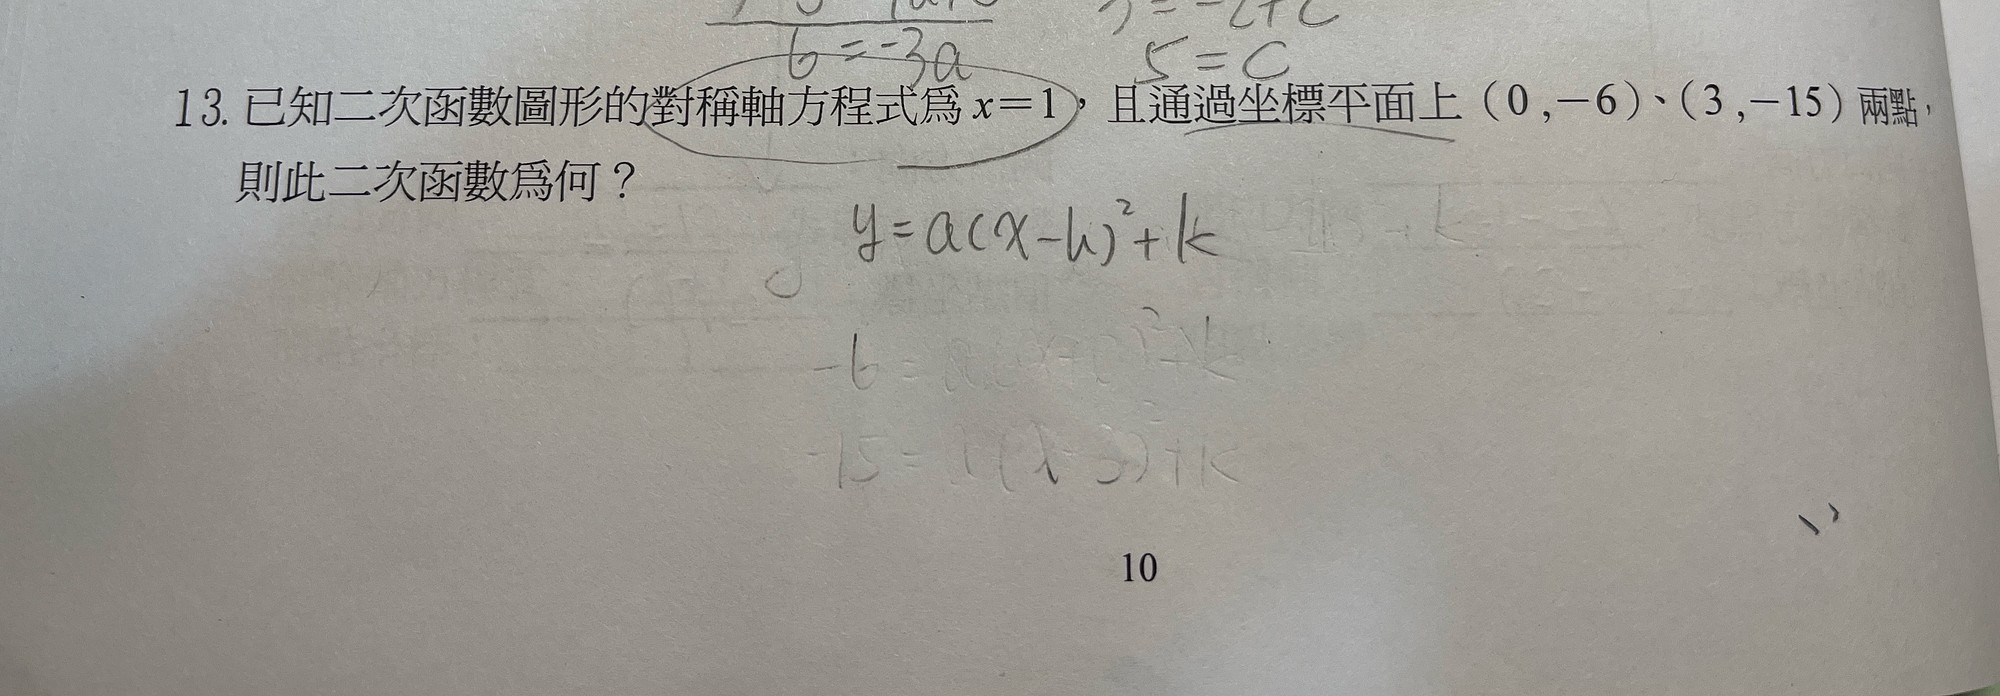 6=-3a
5=C
13. 已知二次函數圖形的對稱軸方程式為 x=1，且通過坐標平面上（0,-6）、（3,-15）兩點，
則此二次函數為何？
y=a(x-h)²+k
10